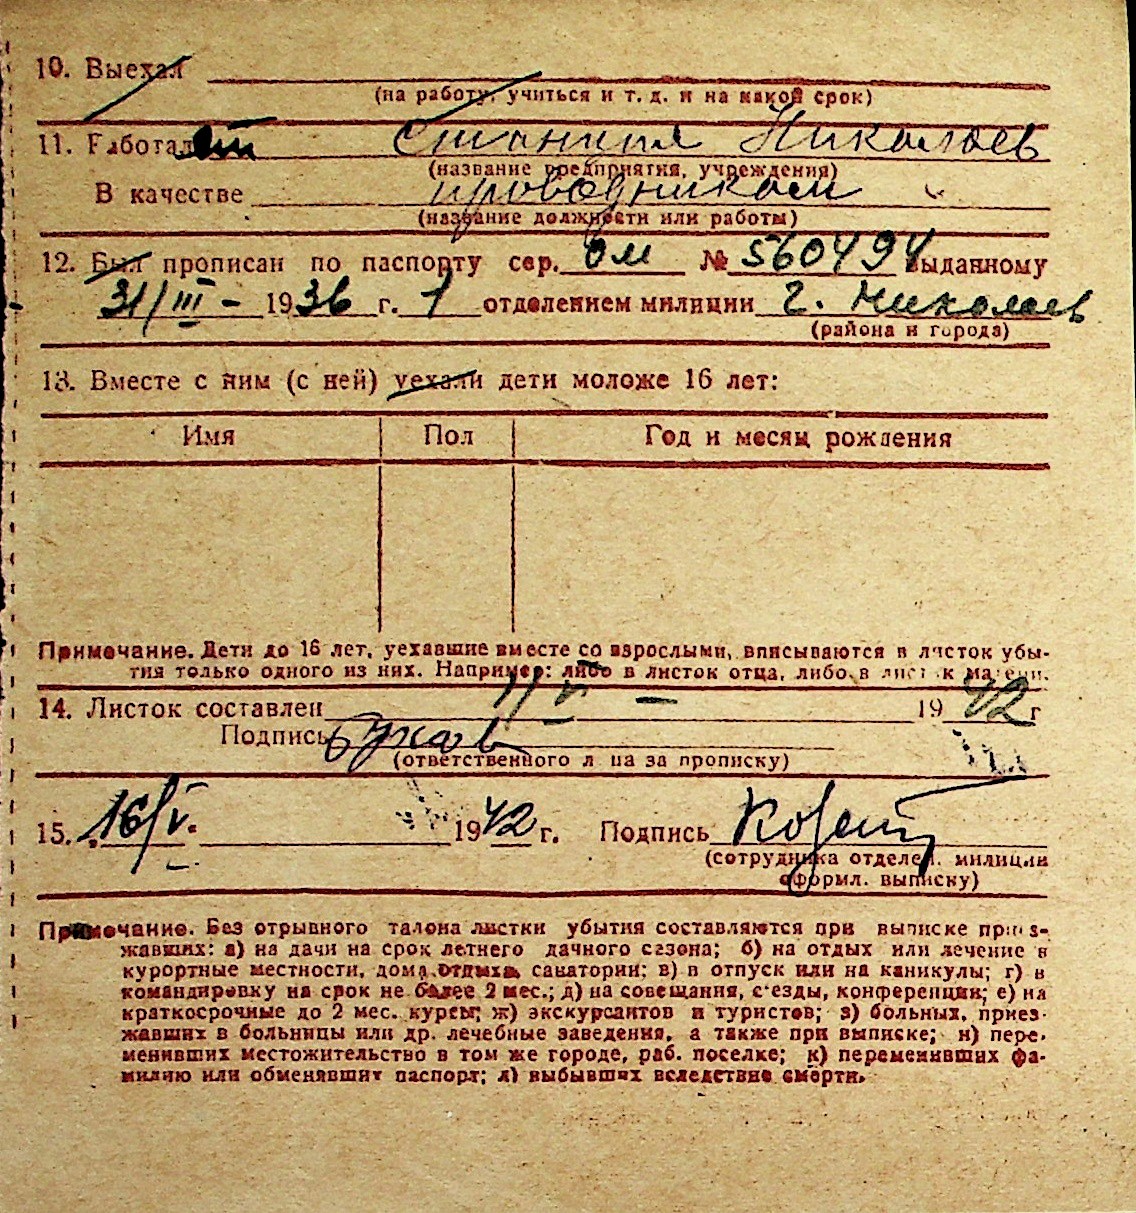 10. Выехал
(на работу, учиться и т. д. и на какой срок)
11. Работает станция Николаев
(название предприятия, учреждения)
В качестве проводником
(название должности или работы)
12. Был прописан по паспорту сер. ОМ № 560494 выданному
31/III – 1936 г. 1 отделением милиции г. Николаев
(района и города)
13. Вместе с ним (с ней) уехали дети моложе 16 лет:
Имя Пол Год и месяц рождения
Примечание. Дети до 16 лет, уехавшие вместе со взрослыми, вписываются в листок убы-
тия только одного из них. Например: либо в листок отца, либо в листок матери.
14. Листок составлен 11/V – 1942 г
Подпись
(ответственного лица за прописку)
15. 16/V. 1942 г. Подпись
(сотрудника отделен. милиции
оформл. выписку)
Примечание. Без отрывного талона листки убытия составляются при выписке приез-
жавших: а) на дачи на срок летнего дачного сезона; б) на отдых или лечение в
курортные местности, дома отдыха, санатории; в) в отпуск или на каникулы; г) в
командировку на срок не более 2 мес.; д) на совещания, с'езды, конференции; е) на
краткосрочные до 2 мес. курсы; ж) экскурсантов и туристов; з) больных, приез-
жавших в больницы или др. лечебные заведения, а также при выписке; и) пере-
менивших местожительство в том же городе, раб. поселке; к) переменивших фа-
милию или обменявших паспорт; л) выбывших вследствие смерти.